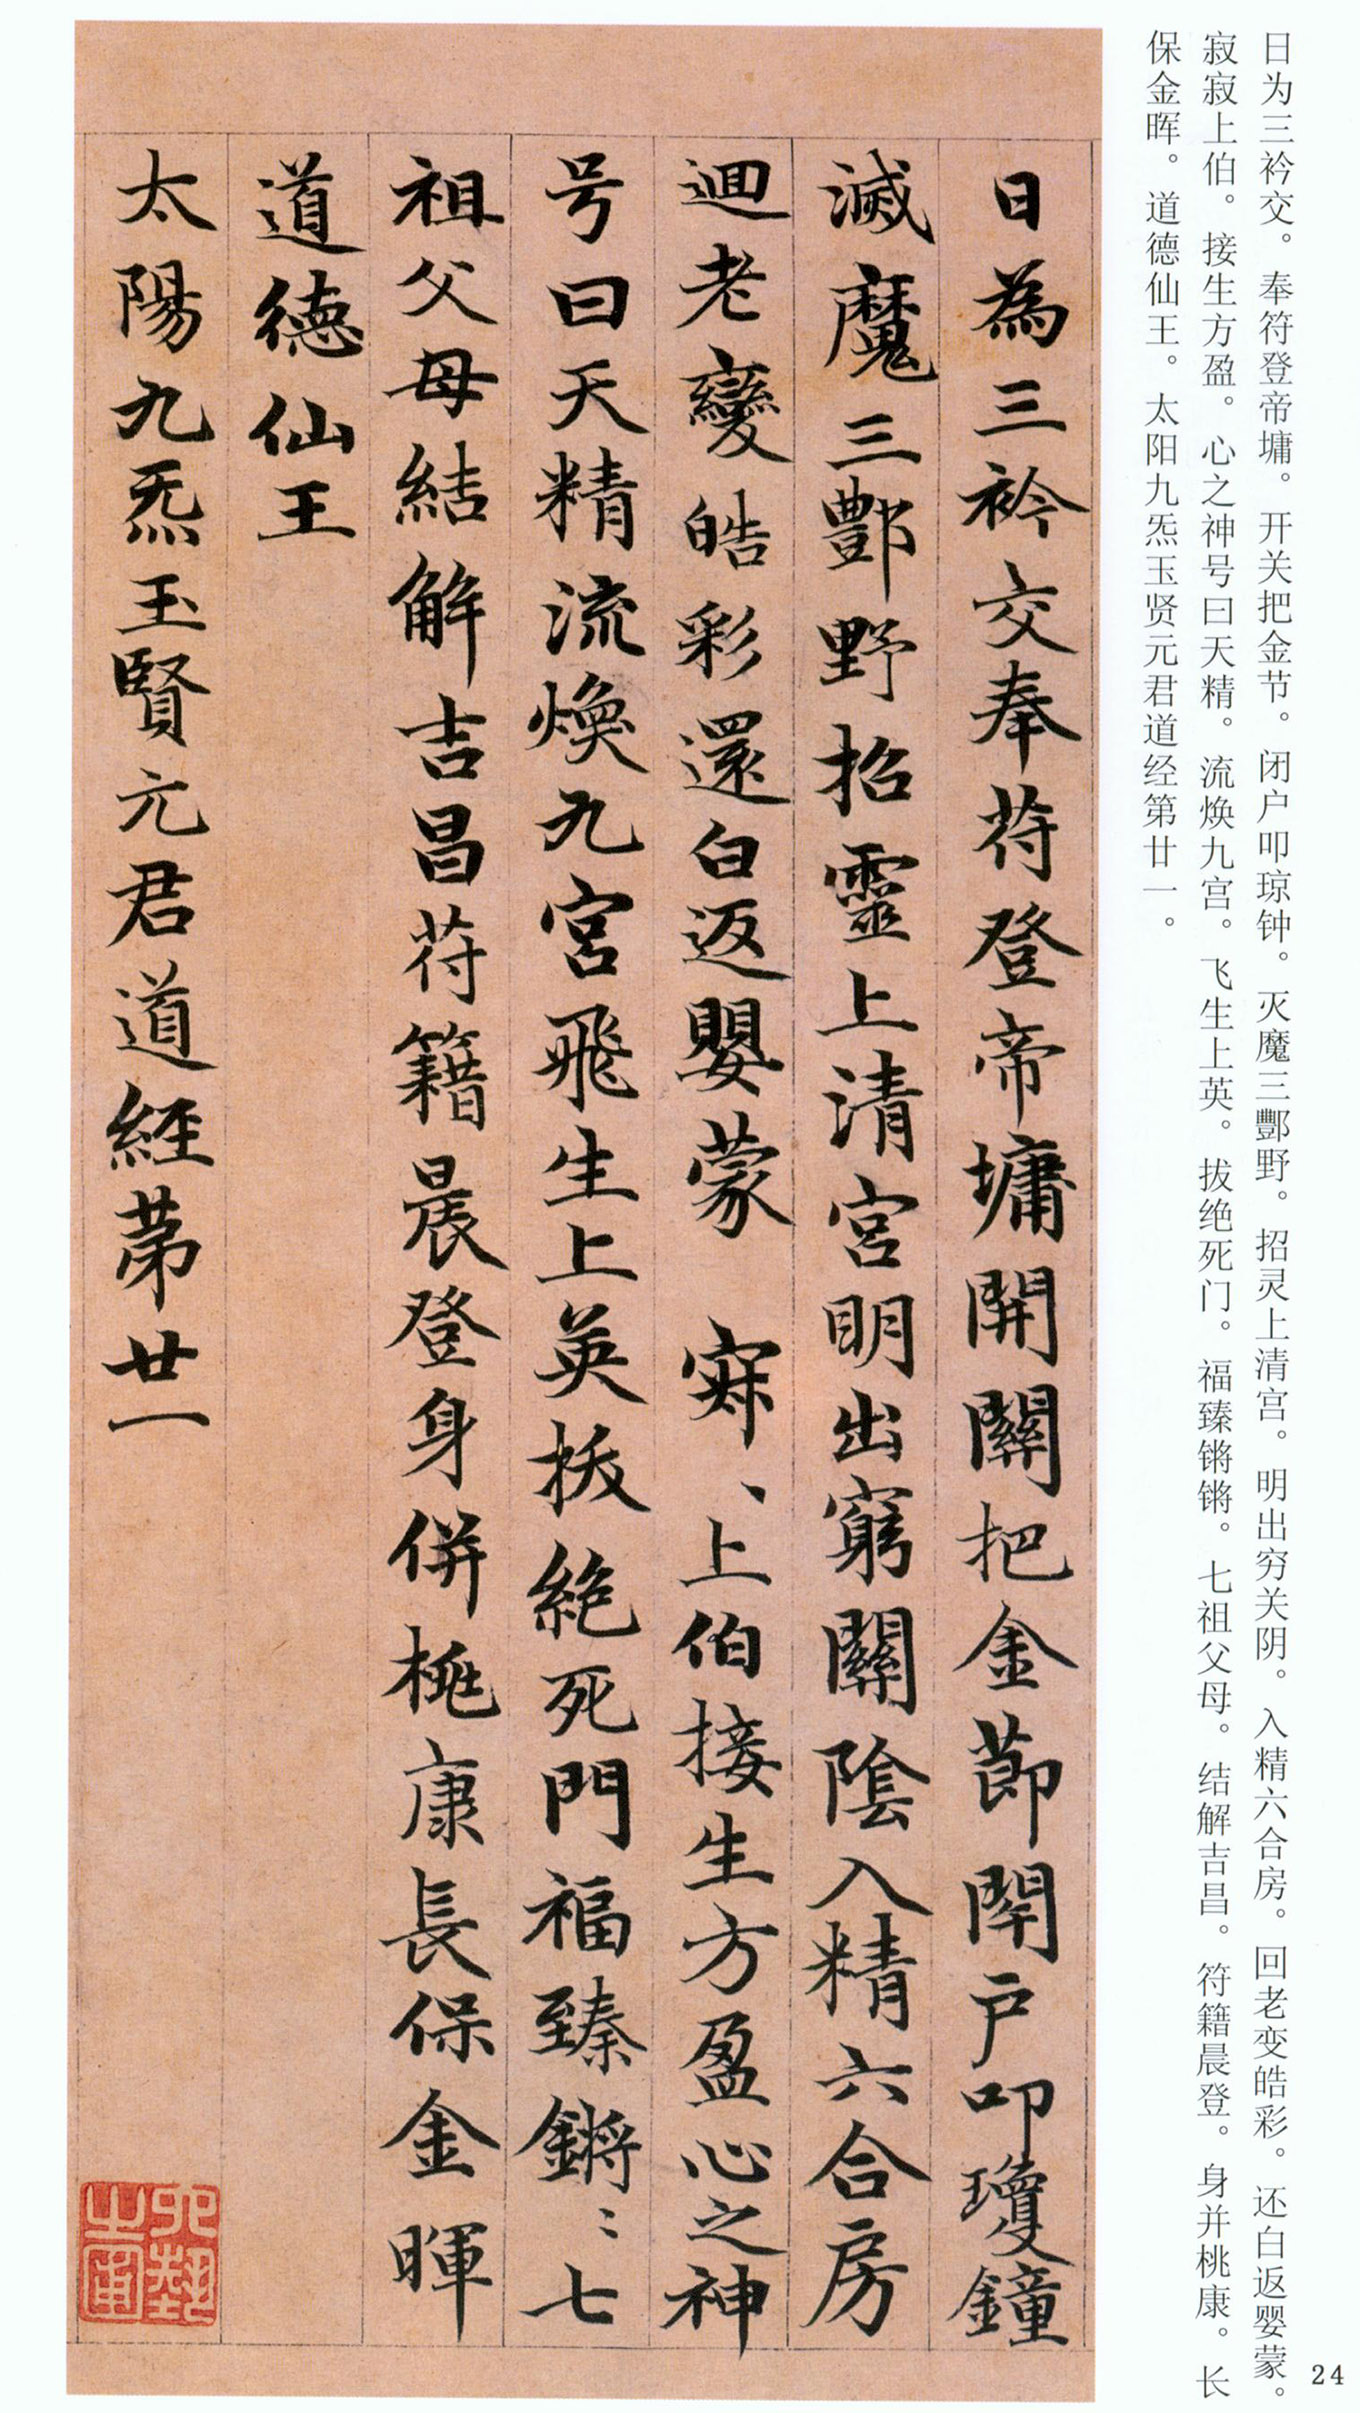 日为三衿交。奉符登帝墉。开关把金节。闭户叩琼钟。灭魔三酆野。招灵上清宫。明出穷关阴。入精六合房。回老变皓彩。还白返婴蒙。
寂寂上伯。接生方盈。心之神号曰天精。流焕九宫。飞生上英。拔绝死门。福臻锵锵。七祖父母。结解吉昌。符籍晨登。身并桃康。长
保金晖。道德仙王。太阳九炁玉贤元君道经第廿一。
日為三衿交奉苻登帝墉開關把金節閇戶叩瓊鐘
滅魔三酆野招靈上清宮明出窮關陰入精六合房
迴老變皓彩還白返嬰蒙 寂、上伯接生方盈心之神
号曰天精流煥九宮飛生上英拔絕死門福臻鏘〻七
祖父母結解吉昌苻籍晨登身併桃康長保金暉
道德仙王
太陽九炁玉賢元君道經苐廿一
24